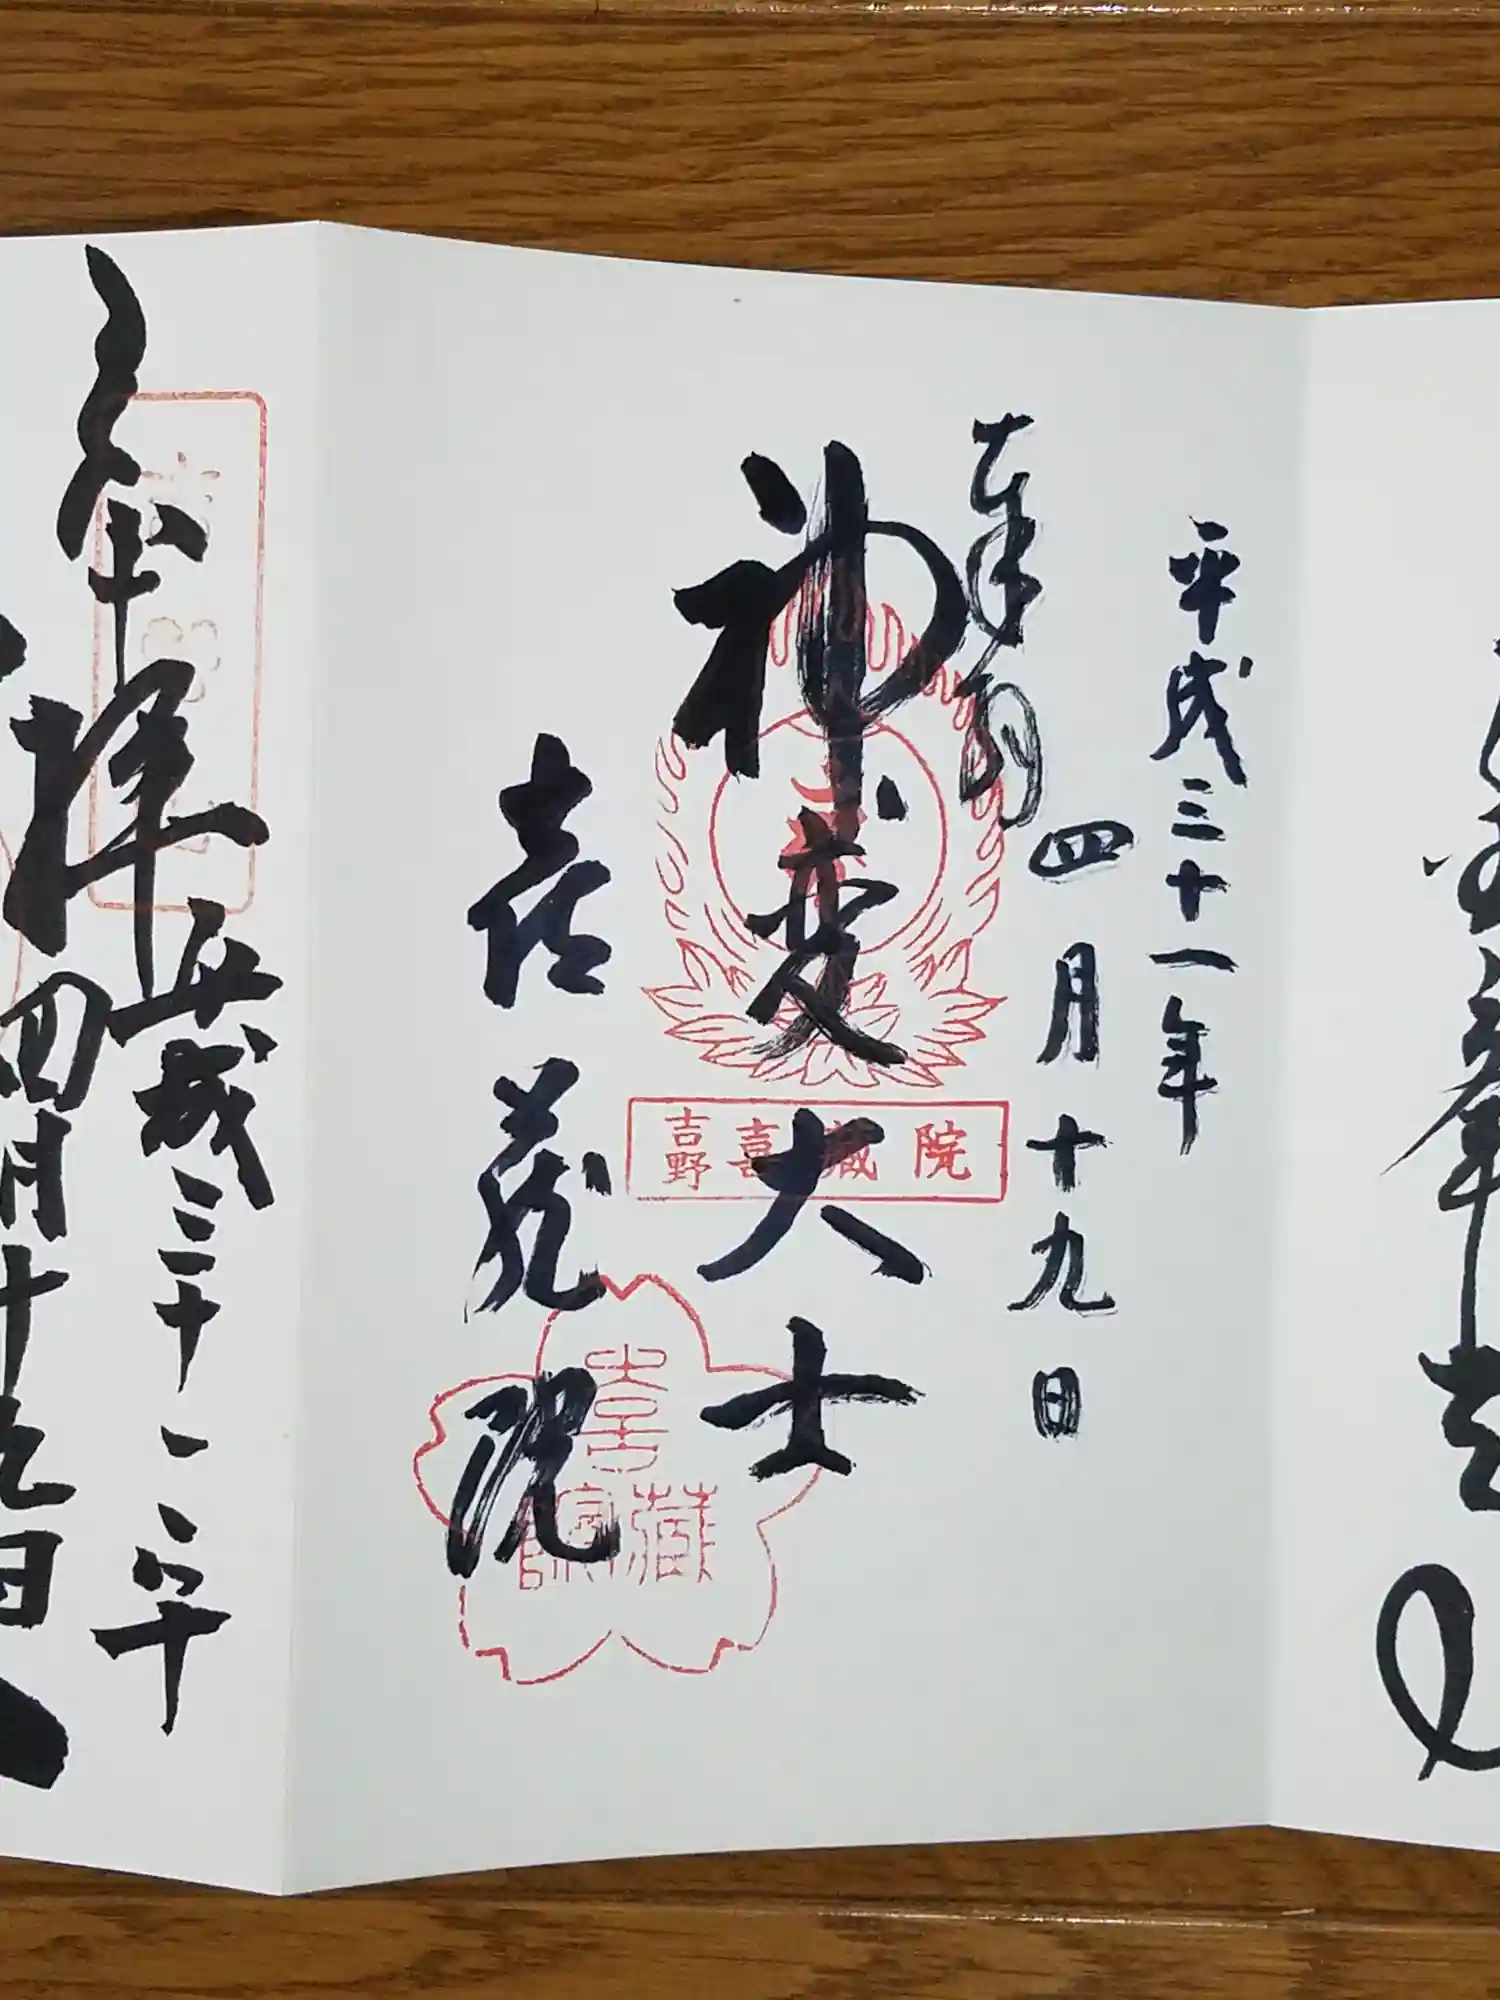 平成三十一年
四月十九日
奉拝
神変大士
吉野 喜蔵院
喜蔵院
喜蔵院
拝
平成三十一年
四月十九日